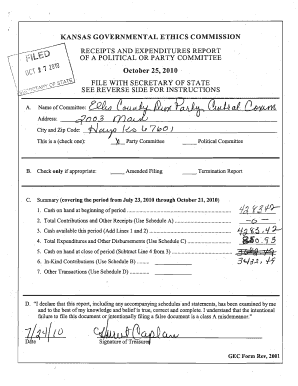 KANSAS GOVERNMENTAL ETHICS COMMISSION
RECEIPTS AND EXPENDITURES REPORT
OF A POLITICAL OR PARTY COMMITTEE
October 25, 2010
FILE WITH SECRETARY OF STATE
SEE REVERSE SIDE FOR INSTRUCTIONS
FILED
OCT 27 2010
SECRETARY OF STATE
A. Name of Committee: Ellis County Dem Party Central Comm
Address: 2003 Main
City and Zip Code: Hays Ks 67601
This is a (check one): X Party Committee Political Committee
B. Check only if appropriate: Amended Filing Termination Report
C. Summary (covering the period from July 23, 2010 through October 21, 2010)
1. Cash on hand at beginning of period 4283.42
2. Total Contributions and Other Receipts (Use Schedule A) -0-
3. Cash available this period (Add Lines 1 and 2) 4283.42
4. Total Expenditures and Other Disbursements (Use Schedule C)
5. Cash on hand at close of period (Subtract Line 4 from 3)
6. In-Kind Contributions (Use Schedule B)
7. Other Transactions (Use Schedule D)
D. "I declare that this report, including any accompanying schedules and statements, has been examined by me
and to the best of my knowledge and belief is true, correct and complete. I understand that the intentional
failure to file this document or intentionally filing a false document is a class A misdemeanor."
7/24/10
Date Signature of Treasurer
GEC Form Rev, 2001